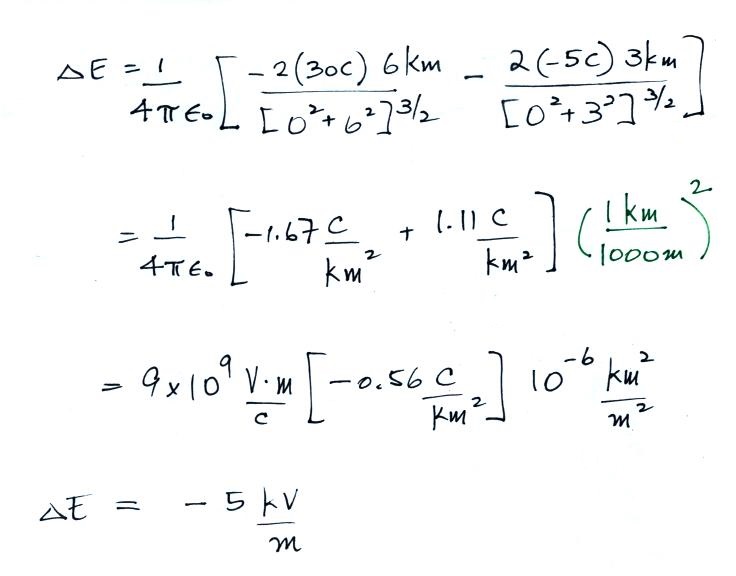 ΔE = 1/4πϵ₀ [ -2(30C) 6km / [0²+6²]^3/2 - 2(-5C) 3km / [0²+3²]^3/2 ]
= 1/4πϵ₀ [ -1.67 C/km² + 1.11 C/km² ] (1 km/1000m)²
= 9x10⁹ V·m/C [ -0.56 C/km² ] 10⁻⁶ km²/m²
ΔE = - 5 kV/m